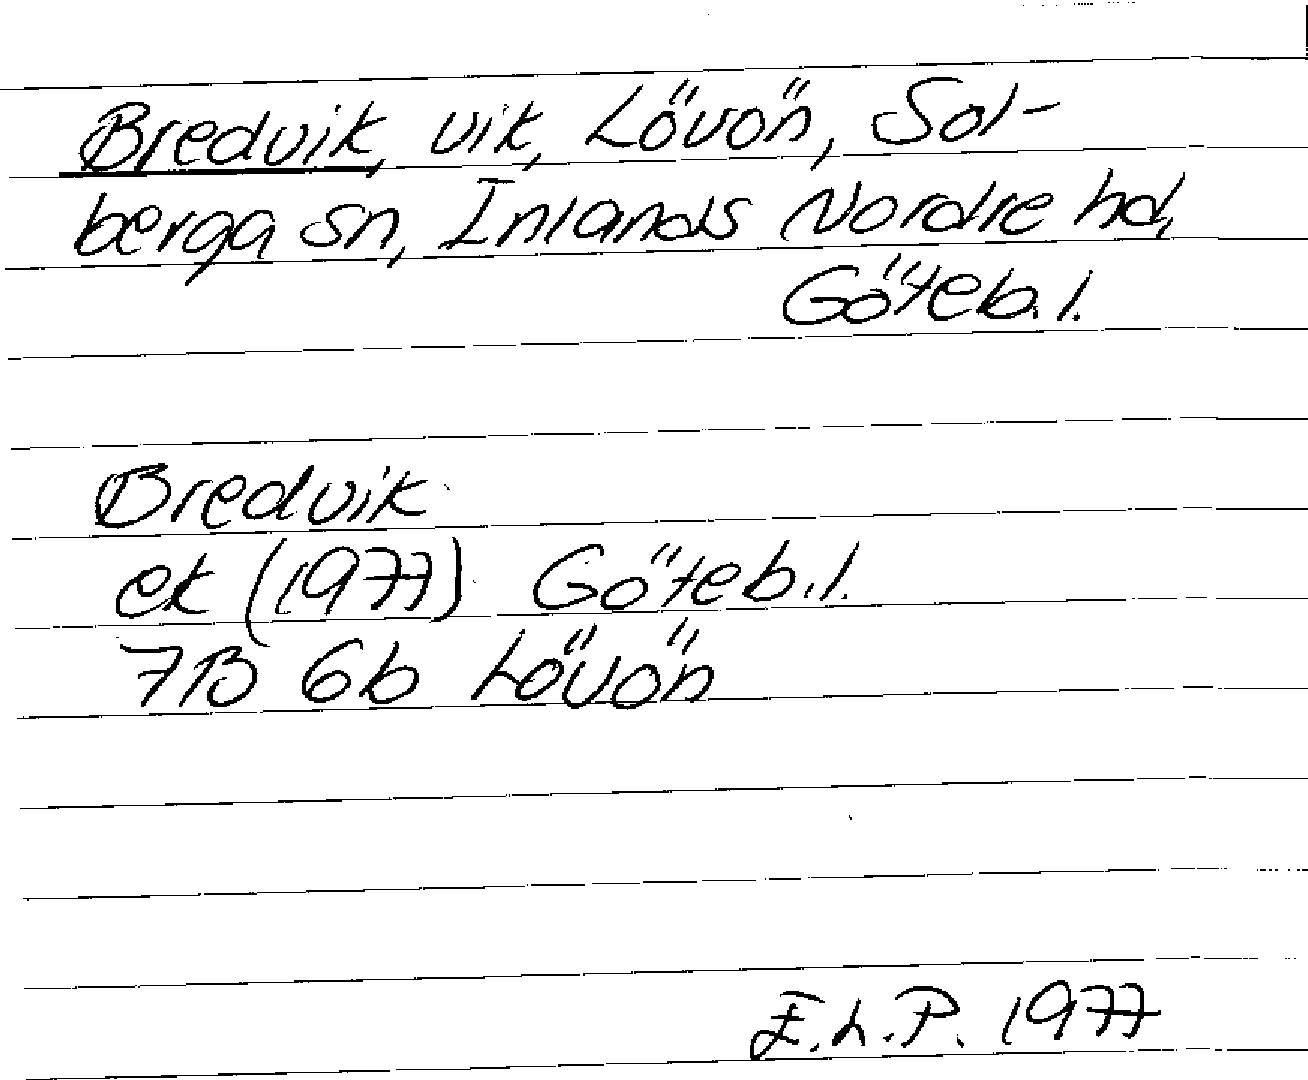 Bredvik, vik, Lövön, Sol-
berga sn, Inlands Nordre hd,
Göteb. l.
Bredvik
ek (1977) Göteb. l.
7B 6b Lövön
E.L.P. 1977